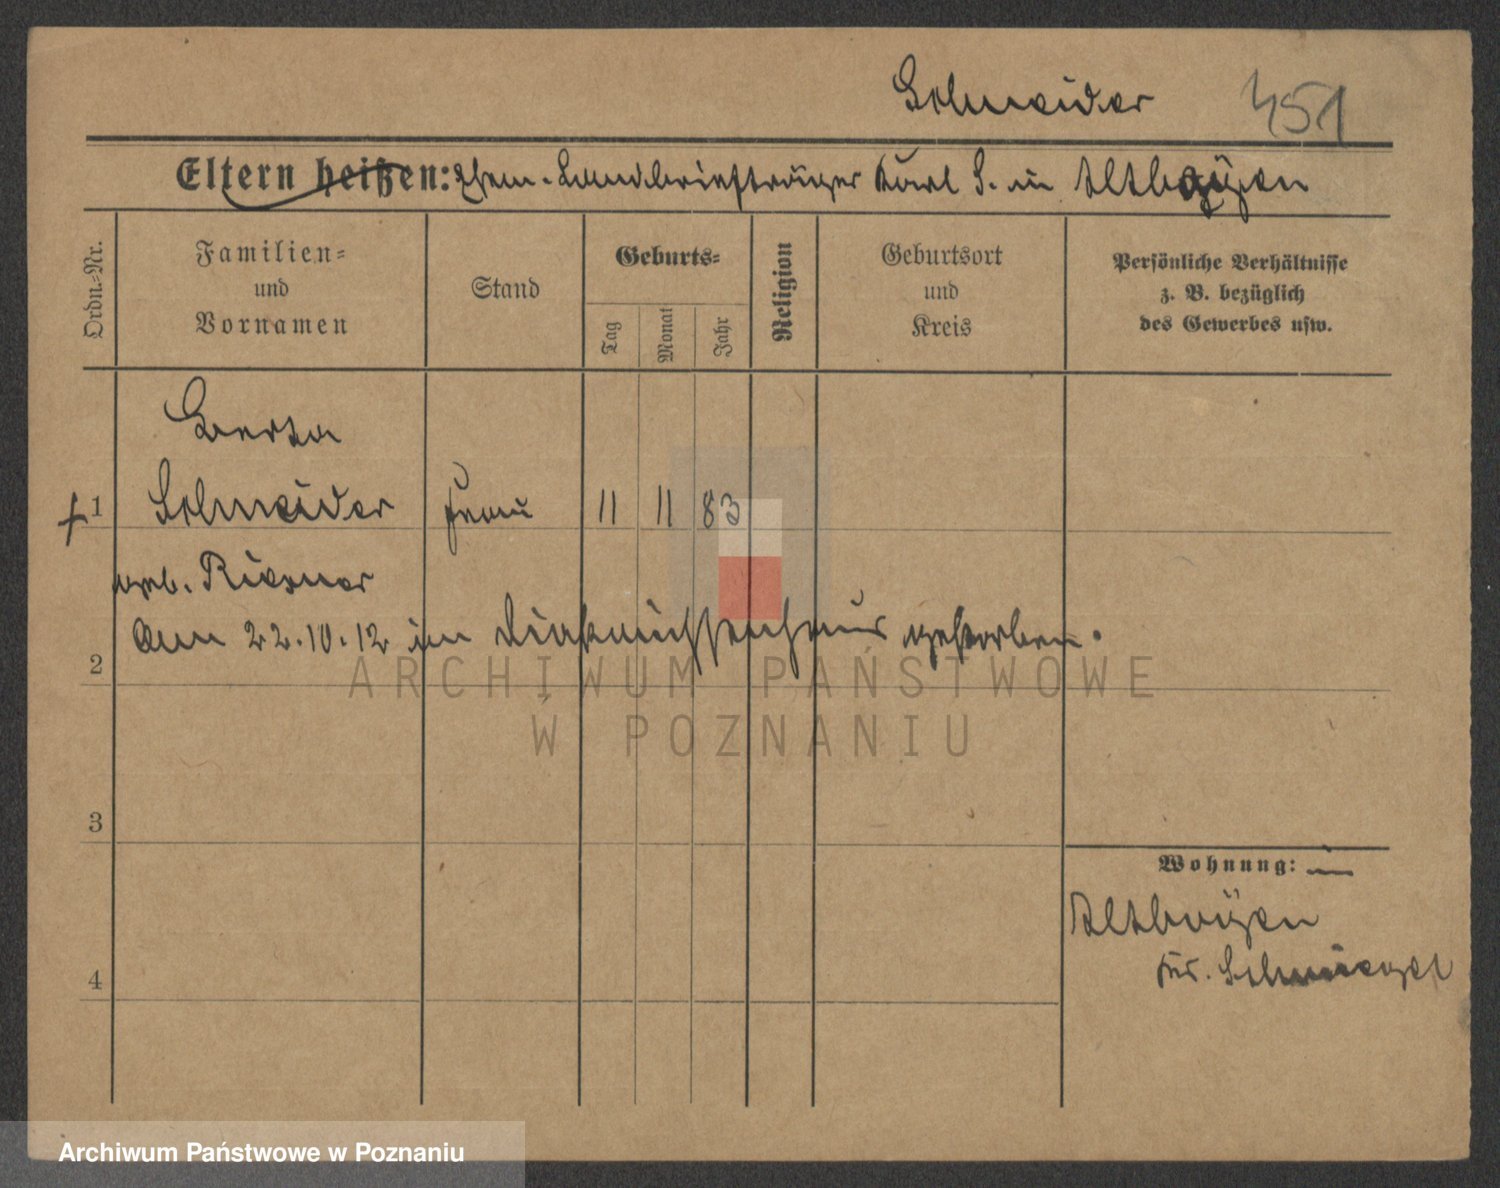 Schneider 451
Eltern heißen: Ehem. Landbriefträger Karl S. in Altboyen
Ordn.-Nr.
Familien-
und
Vornamen
Stand
Geburts-
Tag
Monat
Jahr
Religion
Geburtsort
und
Kreis
Persönliche Verhältnisse
z. B. bezüglich
des Gewerbes usw.
Berta
† 1 Schneider Frau 11 11 83
geb. Riesner
Am 22.10.12 im Diakonissenhaus gestorben.
2
ARCHIWUM PAŃSTWOWE
W POZNANIU
3
Wohnung: in
Altboyen
Kr. Schmiegel
4
Archiwum Państwowe w Poznaniu